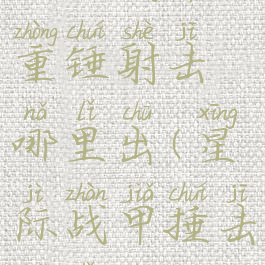 zhòng chuí shè jī
重锤射击
nǎ lǐ chū xīng
哪里出(星
jì zhàn jiǎ chuí jī
际战甲捶击